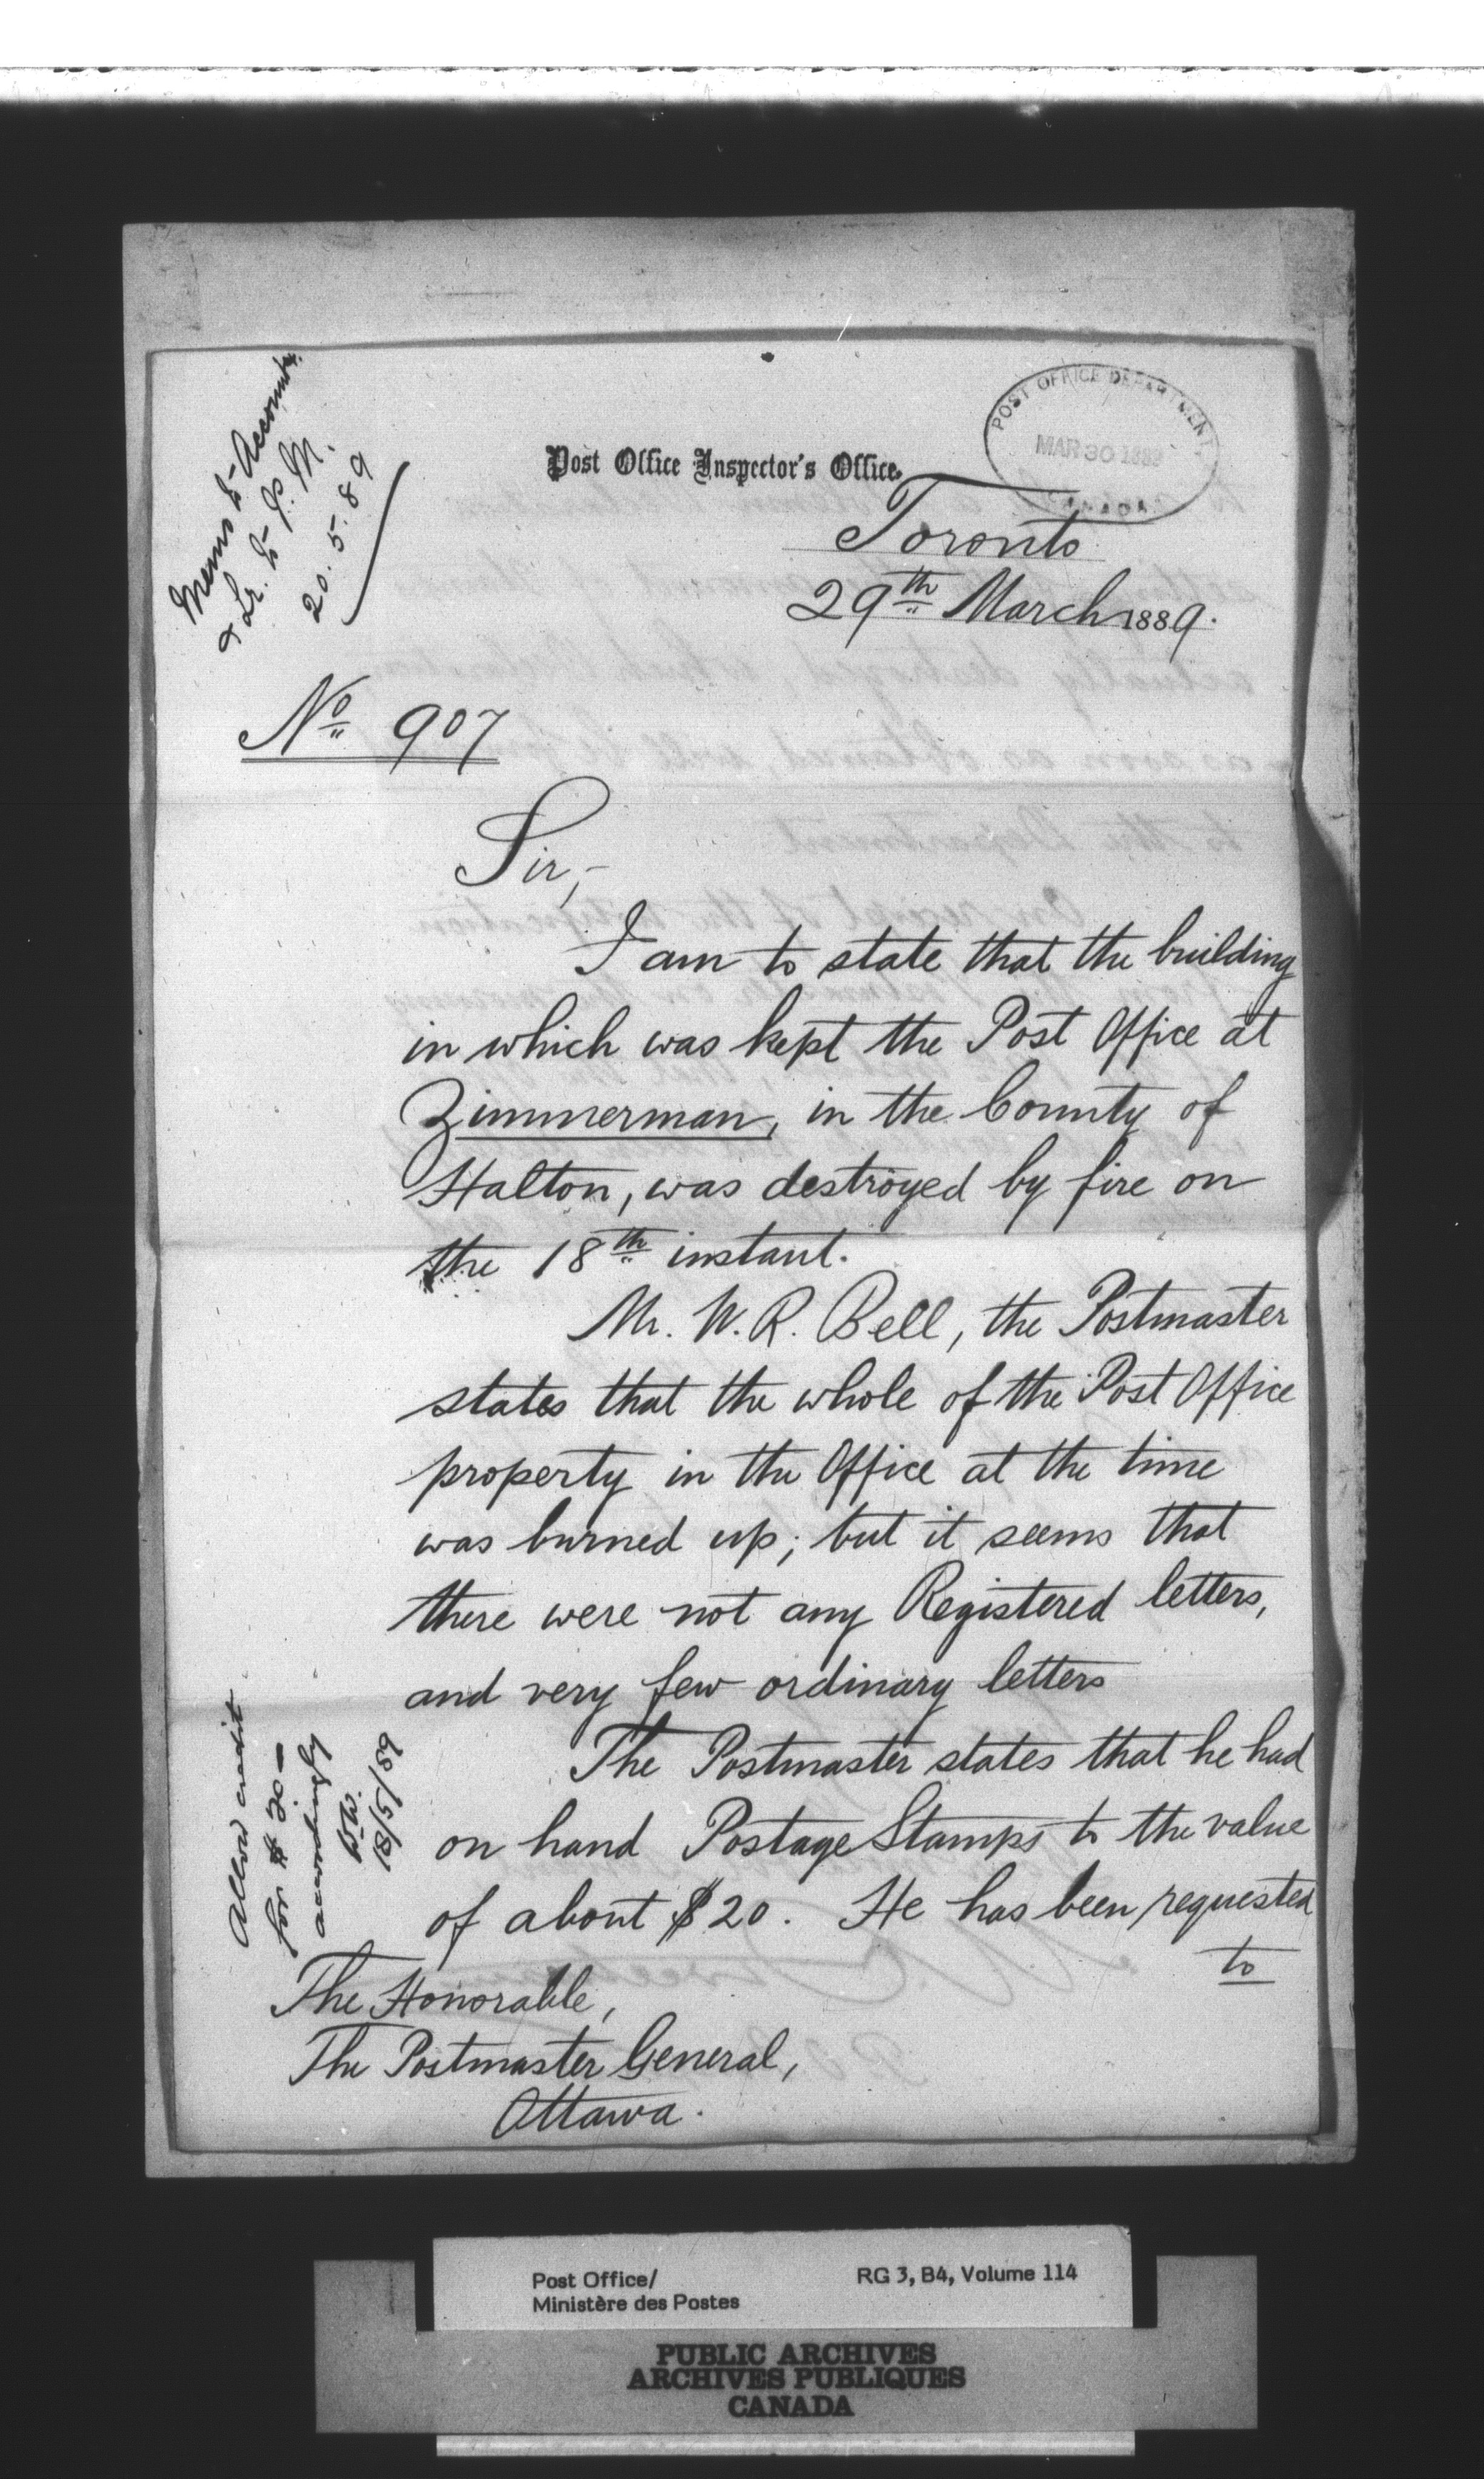 Memo to Accountt.
& Lr. to P. M.
20. 5. 89
POST OFFICE DEPARTMENT
MAR 30 1889
CANADA
Post Office Inspector's Office,
Toronto
29th March 1889.
No 907
Sir,-
I am to state that the building
in which was kept the Post Office at
Zimmerman, in the County of
Halton, was destroyed by fire on
the 18th instant.
Mr. W. R. Bell, the Postmaster
states that the whole of the Post Office
property in the Office at the time
was burned up; but it seems that
there were not any Registered letters,
and very few ordinary letters
The Postmaster states that he had
on hand Postage Stamps to the value
of about $20. He has been requested
to
Allow credit
for $20-
accordingly
18/5/89
The Honorable,
The Postmaster General,
Ottawa.
Post Office/
Ministère des Postes
RG 3, B4, Volume 114
PUBLIC ARCHIVES
ARCHIVES PUBLIQUES
CANADA